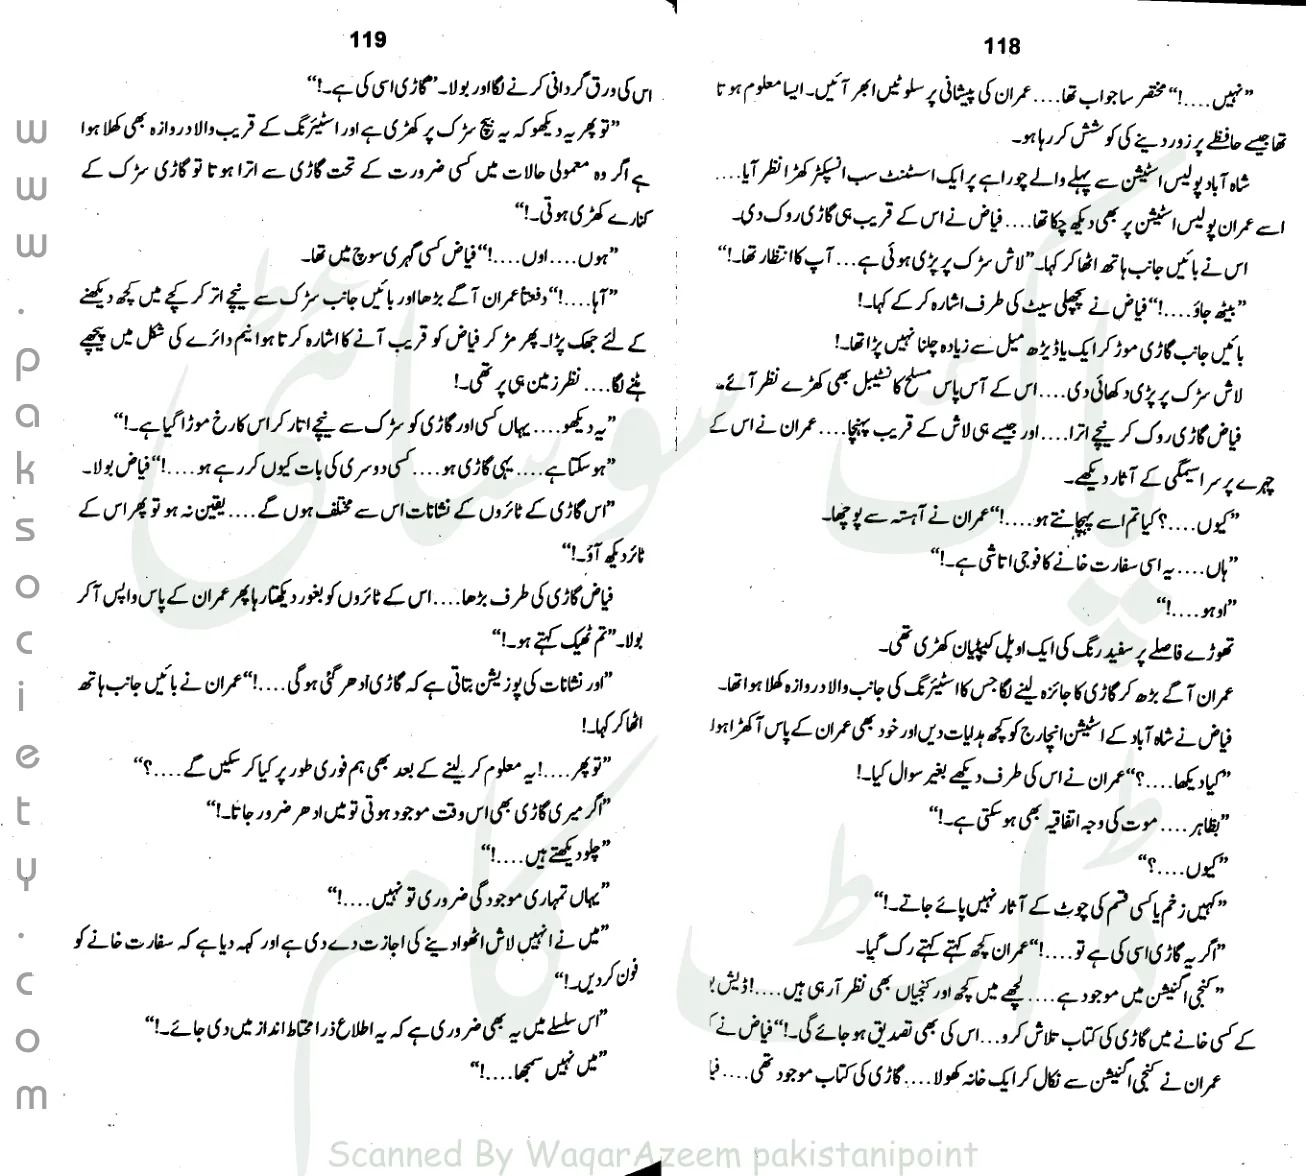 118
”نہیں....!“ مختصر سا جواب تھا.... عمران کی پیشانی پر سلوٹیں ابھر آئیں۔ ایسا معلوم ہوتا
تھا جیسے حافظے پر زور دینے کی کوشش کر رہا ہو۔
شاہ آباد پولیس اسٹیشن سے پہلے والے چوراہے پر ایک اسسٹنٹ سب انسپکٹر کھڑا نظر آیا....
اسے عمران پولیس اسٹیشن پر بھی دیکھ چکا تھا.... فیاض نے اس کے قریب ہی گاڑی روک دی۔
اس نے بائیں جانب ہاتھ اٹھا کر کہا۔ ”لاش سڑک پر پڑی ہوئی ہے... آپ کا انتظار تھا۔!“
”بیٹھ جاؤ....!“ فیاض نے پچھلی سیٹ کی طرف اشارہ کر کے کہا۔!
بائیں جانب گاڑی موڑ کر ایک یا ڈیڑھ میل سے زیادہ چلنا نہیں پڑا تھا۔!
لاش سڑک پر پڑی دکھائی دی.... اس کے آس پاس مسلح کانسٹیبل بھی کھڑے نظر آئے۔
فیاض گاڑی روک کر نیچے اترا.... اور جیسے ہی لاش کے قریب پہنچا.... عمران نے اس کے
چہرے پر سراسیمگی کے آثار دیکھے۔
”کیوں....؟ کیا تم اسے پہچانتے ہو....!“ عمران نے آہستہ سے پوچھا۔
”ہاں.... یہ اسی سفارت خانے کا فوجی اتاشی ہے۔!“
”اوہو....!“
تھوڑے فاصلے پر سفید رنگ کی ایک اوپل کیپٹیان کھڑی تھی۔
عمران آگے بڑھ کر گاڑی کا جائزہ لینے لگا جس کا اسٹیئرنگ کی جانب والا دروازہ کھلا ہوا تھا۔
فیاض نے شاہ آباد کے اسٹیشن انچارج کو کچھ ہدایات دیں اور خود بھی عمران کے پاس آ کھڑا ہوا
”کیا دیکھا....؟“ عمران نے اس کی طرف دیکھے بغیر سوال کیا۔!
”بظاہر.... موت کی وجہ اتفاقیہ بھی ہو سکتی ہے۔!“
”کیوں....؟“
”کہیں زخم یا کسی قسم کی چوٹ کے آثار نہیں پائے جاتے۔!“
”اگر یہ گاڑی اسی کی ہے تو....!“ عمران کچھ کہتے کہتے رک گیا۔
”کنجی اگنیشن میں موجود ہے.... گچھے میں کچھ اور کنجیاں بھی نظر آرہی ہیں....! ڈیش
کے کسی خانے میں گاڑی کی کتاب تلاش کرو... اس کی بھی تصدیق ہو جائے گی۔!“ فیاض نے
عمران نے کنجی اگنیشن سے نکال کر ایک خانہ کھولا.... گاڑی کی کتاب موجود تھی....
119
اس کی ورق گردانی کرنے لگا اور بولا۔ ”گاڑی اسی کی ہے۔!“
”تو پھر یہ دیکھو کہ یہ بیچ سڑک پر کھڑی ہے اور اسٹیئرنگ کے قریب والا دروازہ بھی کھلا ہوا
ہے اگر وہ معمولی حالات میں کسی ضرورت کے تحت گاڑی سے اترا ہوتا تو گاڑی سڑک کے
کنارے کھڑی ہوتی۔!“
”ہوں.... اوں....!“ فیاض کسی گہری سوچ میں تھا۔
”آہا....!“ دفعتاً عمران آگے بڑھا اور بائیں جانب سڑک سے نیچے اتر کر کچے میں کچھ دیکھنے
کے لئے جھک پڑا۔ پھر مڑ کر فیاض کو قریب آنے کا اشارہ کرتا ہوا نیم دائرے کی شکل میں پیچھے
ہٹنے لگا.... نظر زمین ہی پر تھی۔!
”یہ دیکھو.... یہاں کسی اور گاڑی کو سڑک سے نیچے اتار کر اس کا رخ موڑا گیا ہے۔!“
”ہو سکتا ہے.... یہی گاڑی ہو.... کسی دوسری کی بات کیوں کر رہے ہو....!“ فیاض بولا۔
”اس گاڑی کے ٹائروں کے نشانات اس سے مختلف ہوں گے.... یقین نہ ہو تو پھر اس کے
ٹائر دیکھ آؤ۔!“
فیاض گاڑی کی طرف بڑھا.... اس کے ٹائروں کو بغور دیکھتا رہا پھر عمران کے پاس واپس آ کر
بولا۔ ”تم ٹھیک کہتے ہو۔!“
”اور نشانات کی پوزیشن بتاتی ہے کہ گاڑی ادھر گئی ہو گی....!“ عمران نے بائیں جانب ہاتھ
اٹھا کر کہا۔!
”تو پھر....! یہ معلوم کر لینے کے بعد بھی ہم فوری طور پر کیا کر سکیں گے....؟“
”اگر میری گاڑی بھی اس وقت موجود ہوتی تو میں ادھر ضرور جاتا۔!“
”چلو دیکھتے ہیں....!“
”یہاں تمہاری موجودگی ضروری تو نہیں....!“
”میں نے انہیں لاش اٹھوا دینے کی اجازت دے دی ہے اور کہہ دیا ہے کہ سفارت خانے کو
فون کر دیں۔!“
”اس سلسلے میں یہ بھی ضروری ہے کہ یہ اطلاع ذرا محتاط انداز میں دی جائے۔!“
”میں نہیں سمجھا....!“
www.paksociety.com
پاک سوسائٹی
ڈاٹ کام
Scanned By WaqarAzeem pakistanipoint